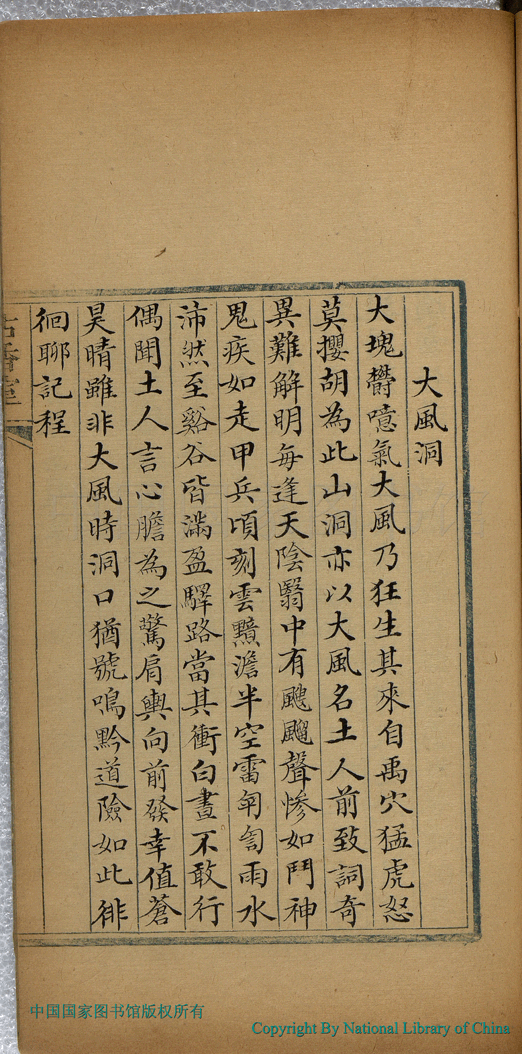 大風洞
大塊鬱噫氣大風乃狂生其來自禹穴猛虎怒
莫攖胡為此山洞亦以大風名土人前致詞奇
異難解明每逢天陰翳中有颼飀聲慘如鬥神
鬼疾如走甲兵頃刻雲黯澹半空雷訇訇雨水
沛然至谿谷皆滿盈驛路當其衝白晝不敢行
偶聞土人言心膽為之驚肩輿向前發幸值蒼
昊晴雖非大風時洞口猶號鳴黔道險如此徘
徊聊記程
中国国家图书馆版权所有
Copyright By National Library of China